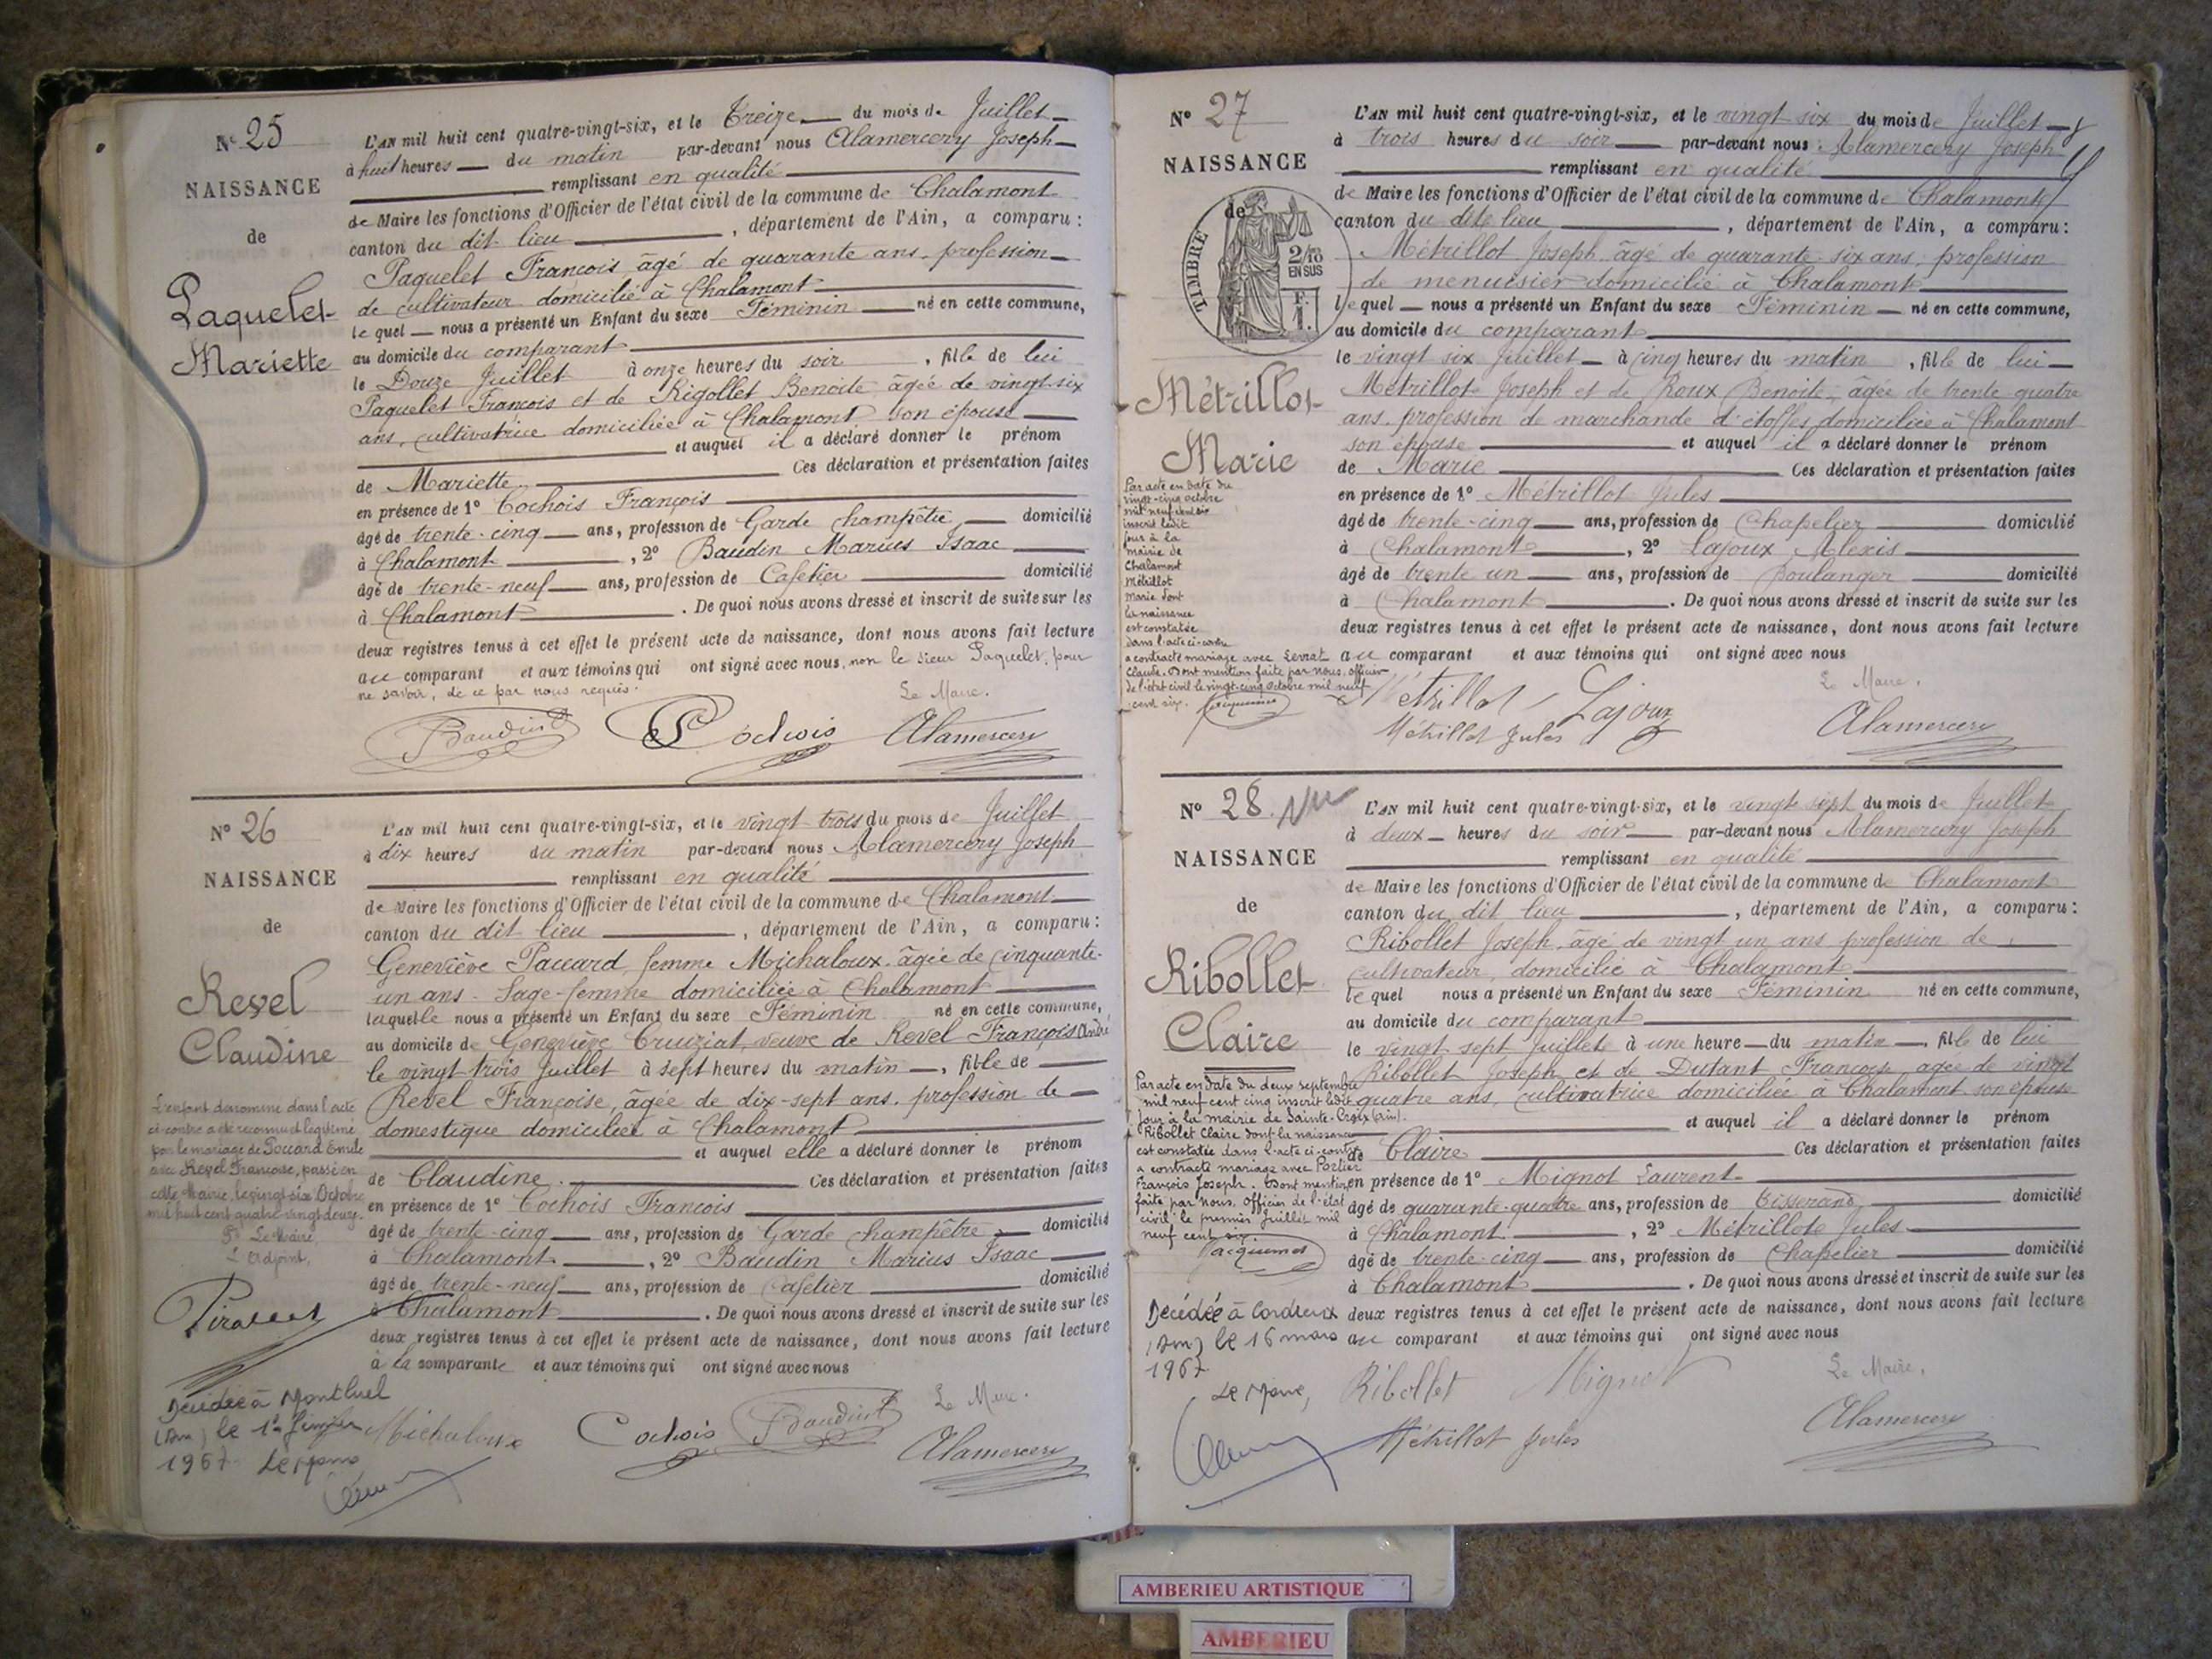 N° 25
NAISSANCE
de
Paquelet
Mariette
L'AN mil huit cent quatre-vingt-six, et le Treize du mois de Juillet
à huit heures du matin par-devant nous Alamercery Joseph
remplissant en qualité
de Maire les fonctions d'Officier de l'état civil de la commune de Chalamont
canton du dit lieu, département de l'Ain, a comparu:
Paquelet François âgé de quarante ans, profession
de cultivateur domicilié à Chalamont
lequel nous a présenté un Enfant du sexe Féminin né en cette commune,
au domicile du comparant
le Douze Juillet à onze heures du soir, fille de lui
Paquelet François et de Rigollet Benoite âgée de vingt-six
ans, cultivatrice domiciliée à Chalamont son épouse
et auquel il a déclaré donner le prénom
de Mariette. Ces déclaration et présentation faites
en présence de 1° Cochois François
âgé de trente-cinq ans, profession de Garde champêtre domicilié
à Chalamont, 2° Baudin Marius Isaac
âgé de trente-neuf ans, profession de Cafetier domicilié
à Chalamont. De quoi nous avons dressé et inscrit de suite sur les
deux registres tenus à cet effet le présent acte de naissance, dont nous avons fait lecture
au comparant et aux témoins qui ont signé avec nous, non le sieur Paquelet, pour
ne savoir, de ce par nous requis.
Le Maire.
Baudin Cochois Alamercery
N° 26
NAISSANCE
de
Revel
Claudine
L'AN mil huit cent quatre-vingt-six, et le vingt trois du mois de Juillet
à dix heures du matin par-devant nous Alamercery Joseph
remplissant en qualité
de Maire les fonctions d'Officier de l'état civil de la commune de Chalamont
canton du dit lieu, département de l'Ain, a comparu:
Geneviève Paccard, femme Michaloux, âgée de cinquante-
un ans. Sage-femme domiciliée à Chalamont
laquelle nous a présenté un Enfant du sexe Féminin né en cette commune,
au domicile de Geneviève Cruiziat, veuve de Revel François André
le vingt trois Juillet à sept heures du matin, fille de
Revel Françoise, âgée de dix-sept ans, profession de
domestique domiciliée à Chalamont
et auquel elle a déclaré donner le prénom
de Claudine. Ces déclaration et présentation faites
en présence de 1° Cochois François
âgé de trente-cinq ans, profession de Garde champêtre, domicilié
à Chalamont, 2° Baudin Marius Isaac
âgé de trente-neuf ans, profession de Cafetier domicilié
à Chalamont. De quoi nous avons dressé et inscrit de suite sur les
deux registres tenus à cet effet le présent acte de naissance, dont nous avons fait lecture
à la comparante et aux témoins qui ont signé avec nous
Le Maire.
Michaloux Cochois Baudin Alamercery
L'enfant dénommé dans l'acte
ci-contre a été reconnu et légitimé
par le mariage de Poccard Emile
avec Revel Françoise, passé en
cette Mairie, le vingt-six Octobre
mil huit cent quatre-vingt douze.
Pr Le Maire
L'adjoint,
Décédée à Montluel
(Ain) le 1er
1967 Le Maire
N° 27
NAISSANCE
de
TIMBRE
2/10
EN SUS
F.
1.
Métrillot
Marie
L'AN mil huit cent quatre-vingt-six, et le vingt six du mois de Juillet
à trois heures du soir par-devant nous Alamercery Joseph
remplissant en qualité
de Maire les fonctions d'Officier de l'état civil de la commune de Chalamont
canton du dit lieu, département de l'Ain, a comparu:
Métrillot Joseph âgé de quarante-six ans, profession
de menuisier domicilié à Chalamont
lequel nous a présenté un Enfant du sexe Féminin né en cette commune,
au domicile du comparant
le vingt six Juillet à cinq heures du matin, fille de lui
Métrillot Joseph et de Roux Benoite, âgée de trente quatre
ans, profession de marchande d'étoffes domiciliée à Chalamont
son épouse et auquel il a déclaré donner le prénom
de Marie Ces déclaration et présentation faites
en présence de 1° Métrillot Jules
âgé de trente-cinq ans, profession de Chapelier domicilié
à Chalamont, 2° Lajoux Alexis
âgé de trente un ans, profession de Boulanger domicilié
à Chalamont. De quoi nous avons dressé et inscrit de suite sur les
deux registres tenus à cet effet le présent acte de naissance, dont nous avons fait lecture
au comparant et aux témoins qui ont signé avec nous
Le Maire.
Métrillot Lajoux
Métrillot Jules Alamercery
Par acte en date du
vingt-cinq octobre
mil neuf cent six
inscrit ledit
jour à la
mairie de
Chalamont
Métrillot
Marie dont
la naissance
est constatée
dans l'acte ci-contre
a contracté mariage avec Levrat
Claude. Dont mention faite par nous, officier
de l'état civil le vingt-cinq Octobre mil neuf
cent six. Jacquemet
N° 28
NAISSANCE
de
Ribollet
Claire
L'AN mil huit cent quatre-vingt-six, et le vingt sept du mois de Juillet
à deux heures du soir par-devant nous Alamercery Joseph
remplissant en qualité
de Maire les fonctions d'Officier de l'état civil de la commune de Chalamont
canton du dit lieu, département de l'Ain, a comparu:
Ribollet Joseph, âgé de vingt un ans profession de
cultivateur, domicilié à Chalamont
lequel nous a présenté un Enfant du sexe Féminin né en cette commune,
au domicile du comparant
le vingt sept Juillet à une heure du matin, fille de lui
Ribollet Joseph et de Dutant Françoise, âgée de vingt
quatre ans, cultivatrice domiciliée à Chalamont son épouse
et auquel il a déclaré donner le prénom
de Claire Ces déclaration et présentation faites
en présence de 1° Mignot Laurent
âgé de quarante-quatre ans, profession de Tisserand domicilié
à Chalamont, 2° Métrillot Jules
âgé de trente-cinq ans, profession de Chapelier domicilié
à Chalamont. De quoi nous avons dressé et inscrit de suite sur les
deux registres tenus à cet effet le présent acte de naissance, dont nous avons fait lecture
au comparant et aux témoins qui ont signé avec nous
Le Maire.
Ribollet Mignot
Métrillot Jules Alamercery
Par acte en date du deux septembre
mil neuf cent cinq inscrit ledit
jour à la mairie de Sainte-Croix (Ain).
Ribollet Claire dont la naissance
est constatée dans l'acte ci-contre
a contracté mariage avec Portier
François Joseph. Dont mention
faite par nous, Officier de l'état
civil le premier Juillet mil
neuf cent six.
Jacquemet
Décédée à Cordieux
(Ain) le 16 mars
1967
Le Maire,
AMBERIEU ARTISTIQUE
AMBERIEU